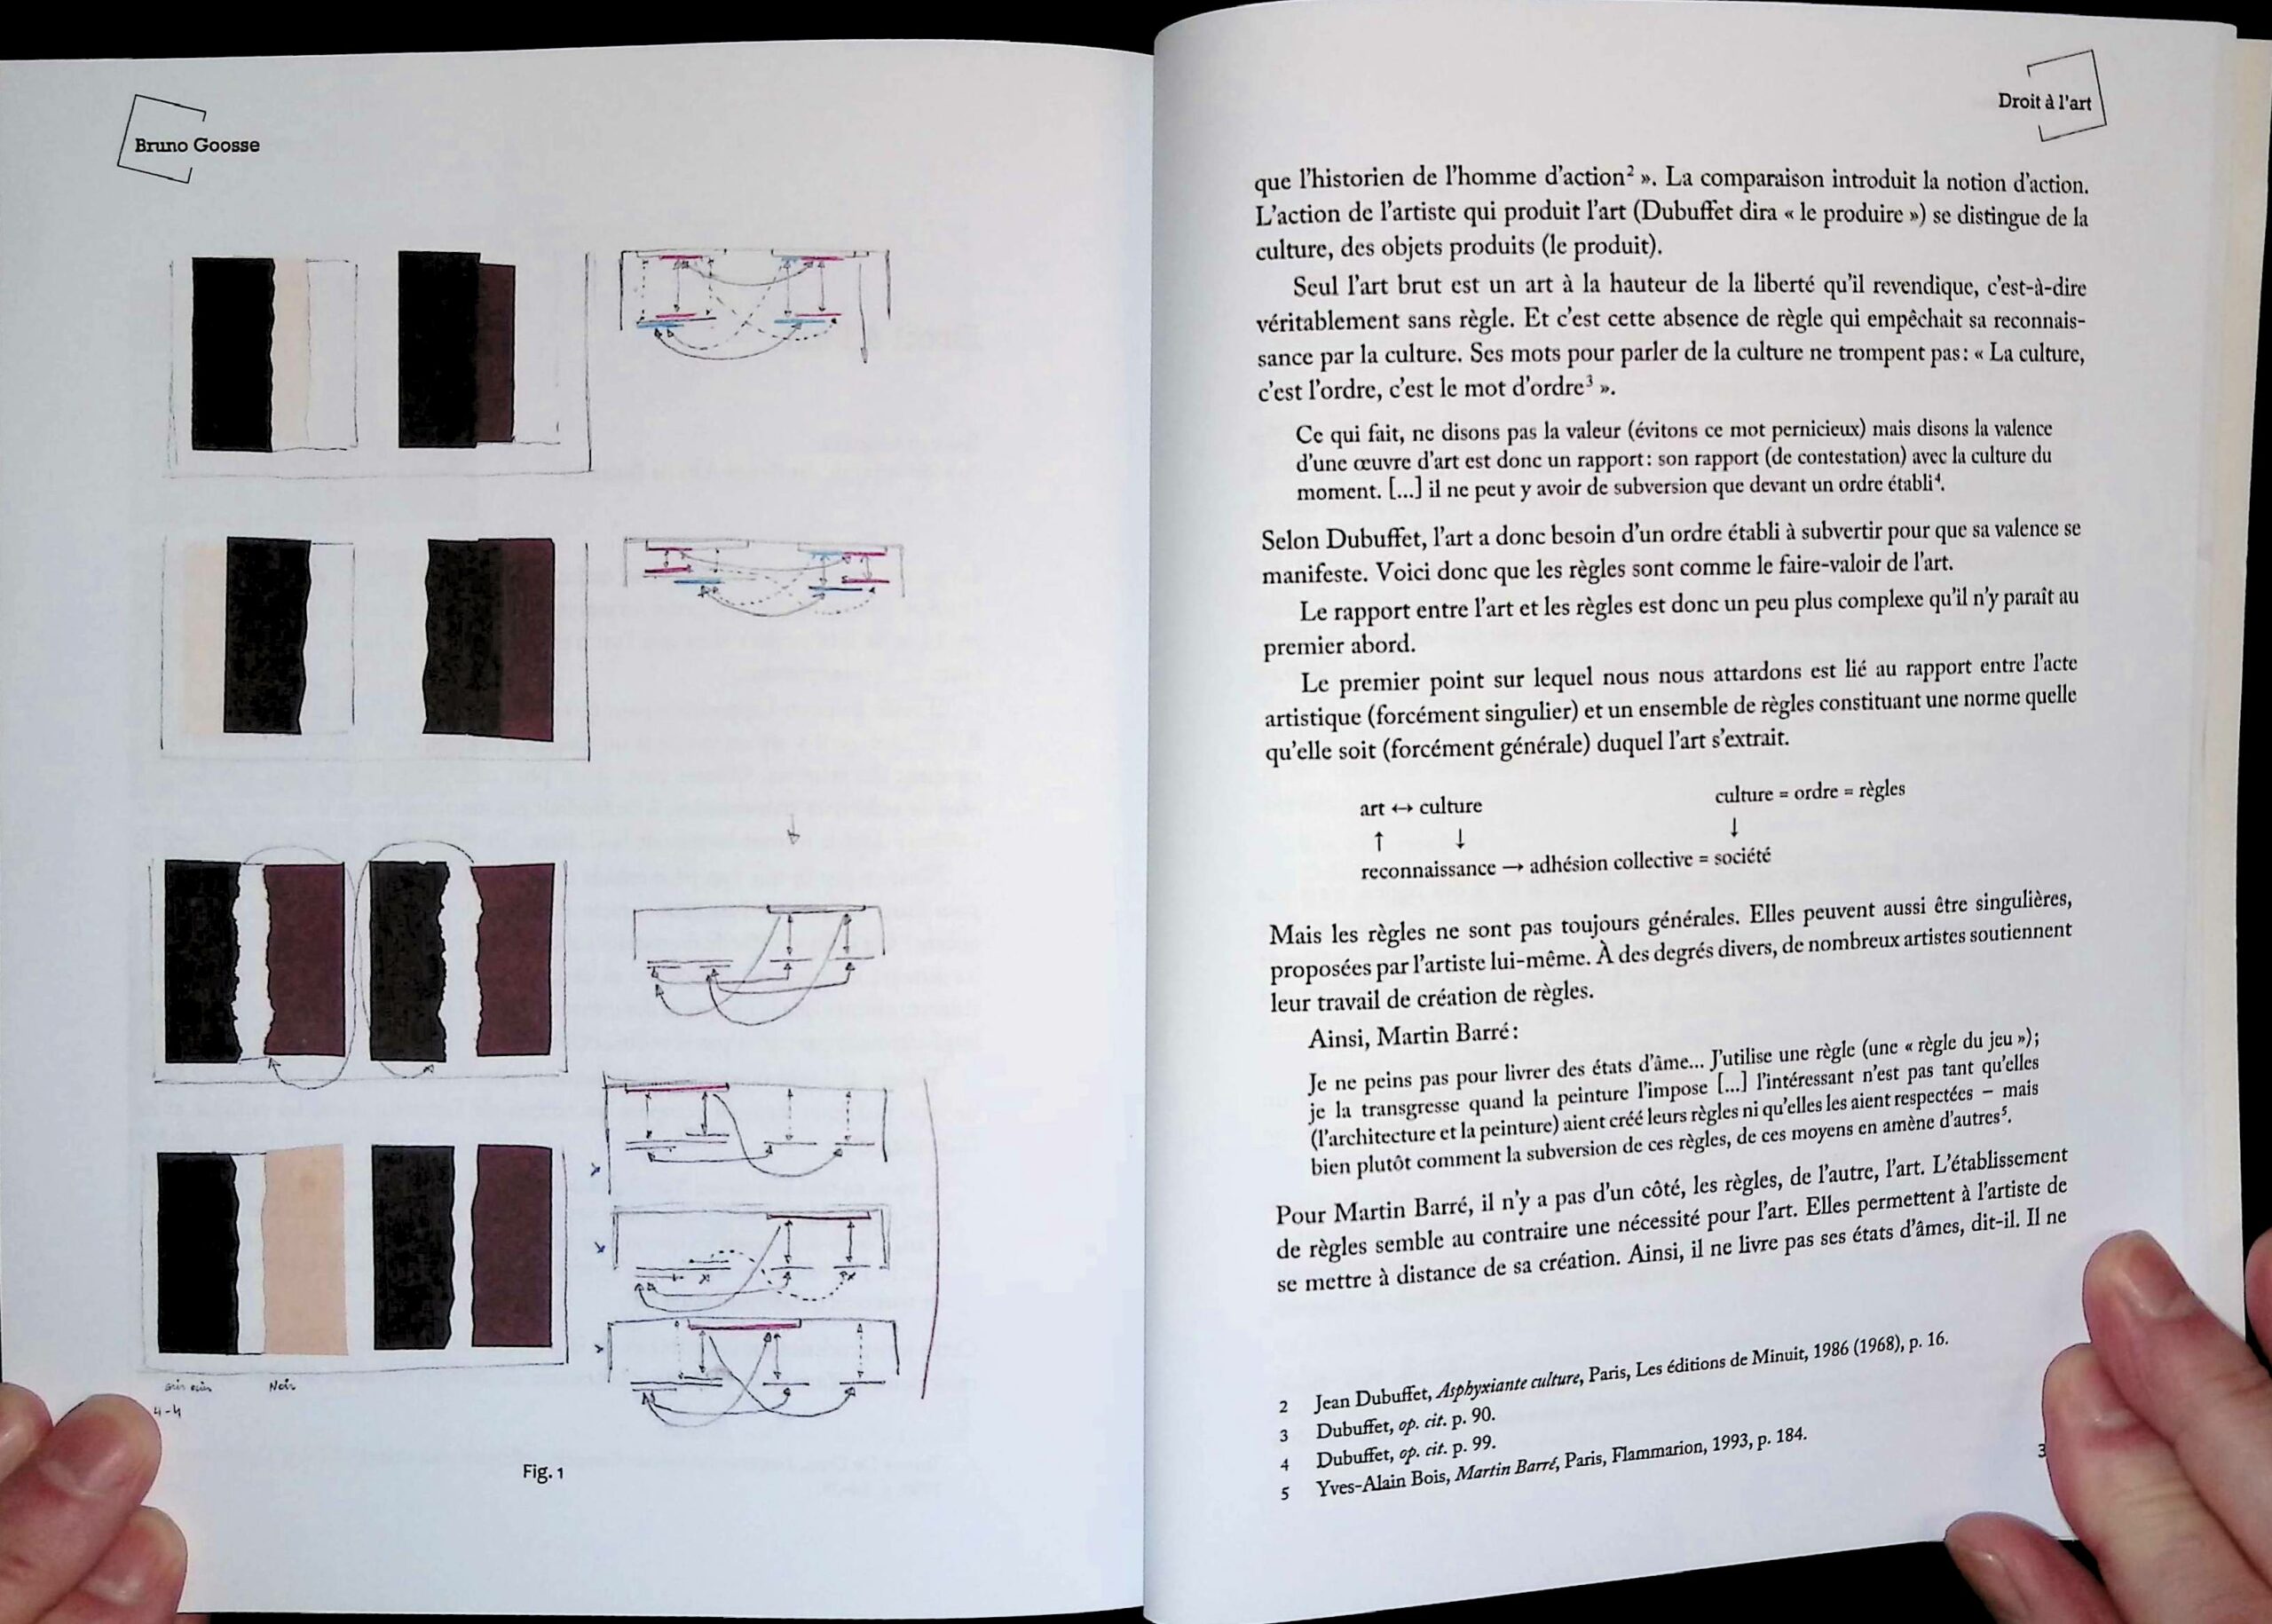 Bruno Goosse
Noir
4-4
Fig. 1
Droit à l'art
que l'historien de l'homme d'action² ». La comparaison introduit la notion d'action.
L'action de l'artiste qui produit l'art (Dubuffet dira « le produire ») se distingue de la
culture, des objets produits (le produit).
Seul l'art brut est un art à la hauteur de la liberté qu'il revendique, c'est-à-dire
véritablement sans règle. Et c'est cette absence de règle qui empêchait sa reconnais-
sance par la culture. Ses mots pour parler de la culture ne trompent pas : « La culture,
c'est l'ordre, c'est le mot d'ordre³ ».
Ce qui fait, ne disons pas la valeur (évitons ce mot pernicieux) mais disons la valence
d'une œuvre d'art est donc un rapport : son rapport (de contestation) avec la culture du
moment. [...] il ne peut y avoir de subversion que devant un ordre établi⁴.
Selon Dubuffet, l'art a donc besoin d'un ordre établi à subvertir pour que sa valence se
manifeste. Voici donc que les règles sont comme le faire-valoir de l'art.
Le rapport entre l'art et les règles est donc un peu plus complexe qu'il n'y paraît au
premier abord.
Le premier point sur lequel nous nous attardons est lié au rapport entre l'acte
artistique (forcément singulier) et un ensemble de règles constituant une norme quelle
qu'elle soit (forcément générale) duquel l'art s'extrait.
art ↔ culture culture = ordre = règles
↑ ↓ ↓
reconnaissance → adhésion collective = société
Mais les règles ne sont pas toujours générales. Elles peuvent aussi être singulières,
proposées par l'artiste lui-même. À des degrés divers, de nombreux artistes soutiennent
leur travail de création de règles.
Ainsi, Martin Barré :
Je ne peins pas pour livrer des états d'âme... J'utilise une règle (une « règle du jeu ») ;
je la transgresse quand la peinture l'impose [...] l'intéressant n'est pas tant qu'elles
(l'architecture et la peinture) aient créé leurs règles ni qu'elles les aient respectées – mais
bien plutôt comment la subversion de ces règles, de ces moyens en amène d'autres⁵.
Pour Martin Barré, il n'y a pas d'un côté, les règles, de l'autre, l'art. L'établissement
de règles semble au contraire une nécessité pour l'art. Elles permettent à l'artiste de
se mettre à distance de sa création. Ainsi, il ne livre pas ses états d'âmes, dit-il. Il ne
2 Jean Dubuffet, Asphyxiante culture, Paris, Les éditions de Minuit, 1986 (1968), p. 16.
3 Dubuffet, op. cit. p. 90.
4 Dubuffet, op. cit. p. 99.
5 Yves-Alain Bois, Martin Barré, Paris, Flammarion, 1993, p. 184.